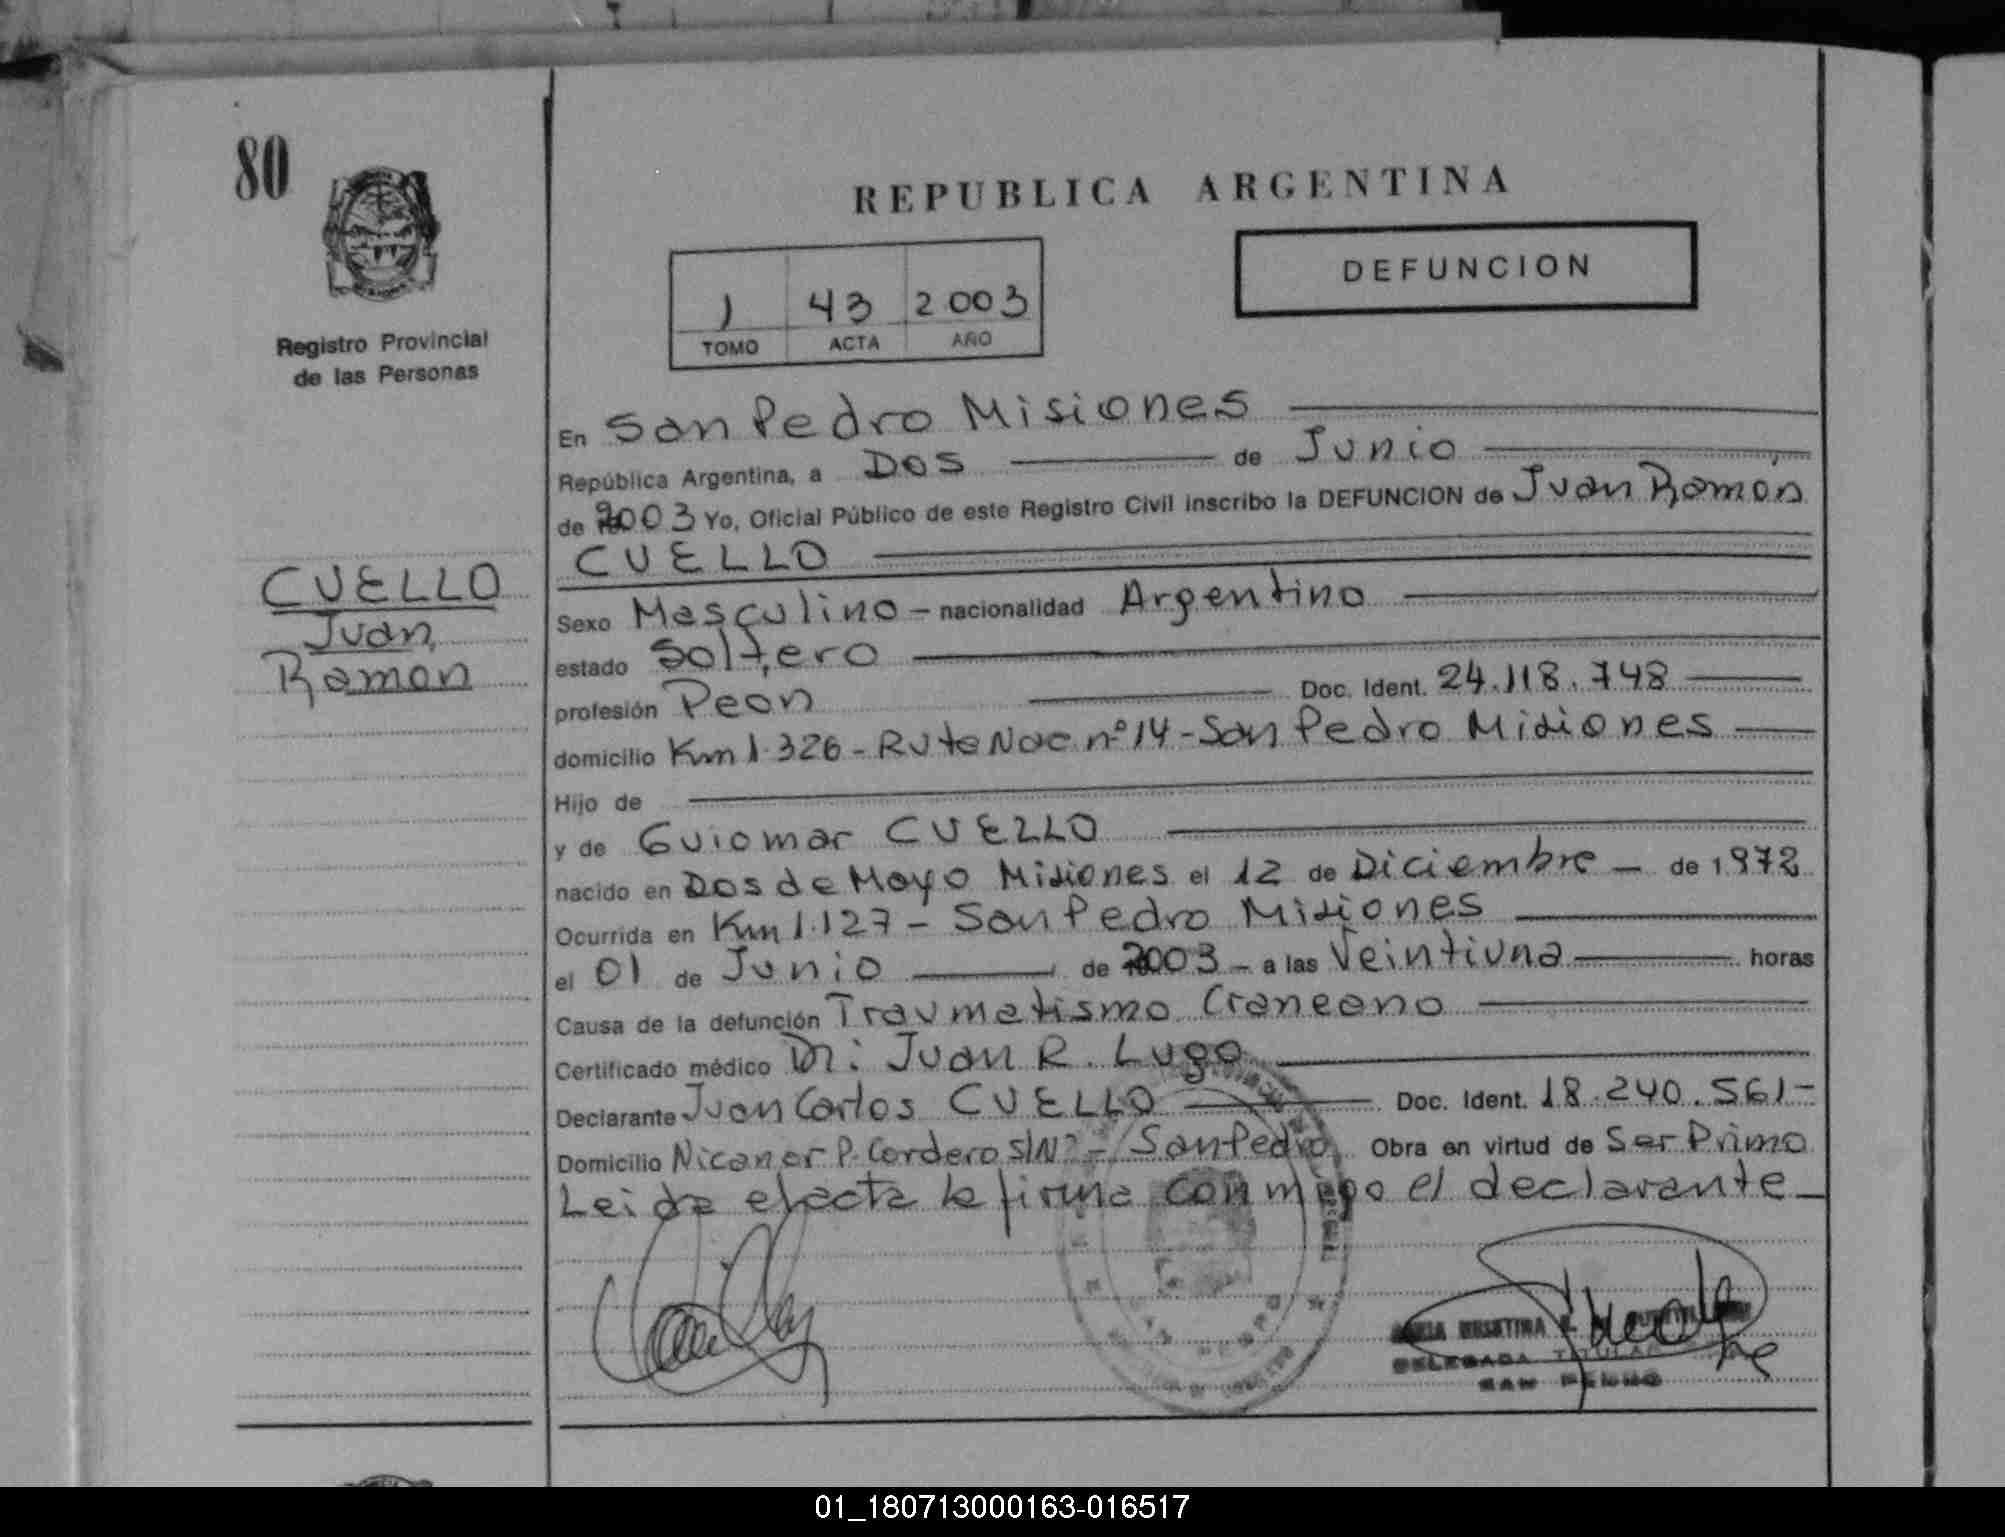 80
REPUBLICA ARGENTINA
DEFUNCION
1 43 2003
TOMO ACTA AÑO
Registro Provincial
de las Personas
En San Pedro Misiones
República Argentina, a Dos de Junio
de 2003 Yo, Oficial Público de este Registro Civil inscribo la DEFUNCION de Juan Ramón
CUELLO
CUELLO
Juan
Ramon
Sexo Masculino - nacionalidad Argentino
estado Soltero
profesión Peon Doc. Ident. 24.118.748
domicilio Km 1.326 - Ruta Nac. nº 14 - San Pedro Misiones
Hijo de
y de Guiomar CUELLO
nacido en Dos de Mayo Misiones el 12 de Diciembre - de 1972
Ocurrida en Km 1.127 - San Pedro Misiones
el 01 de Junio de 2003 - a las Veintiuna horas
Causa de la defunción Traumatismo Craneano
Certificado médico Dr: Juan R. Lugo
Declarante Juan Carlos CUELLO Doc. Ident. 18.240.561-
Domicilio Nicanor P. Cordero S/Nº - San Pedro Obra en virtud de Ser Primo
Leida el acta la firma conmigo el declarante
DELEGADA TITULAR
SAN PEDRO
01_180713000163-016517